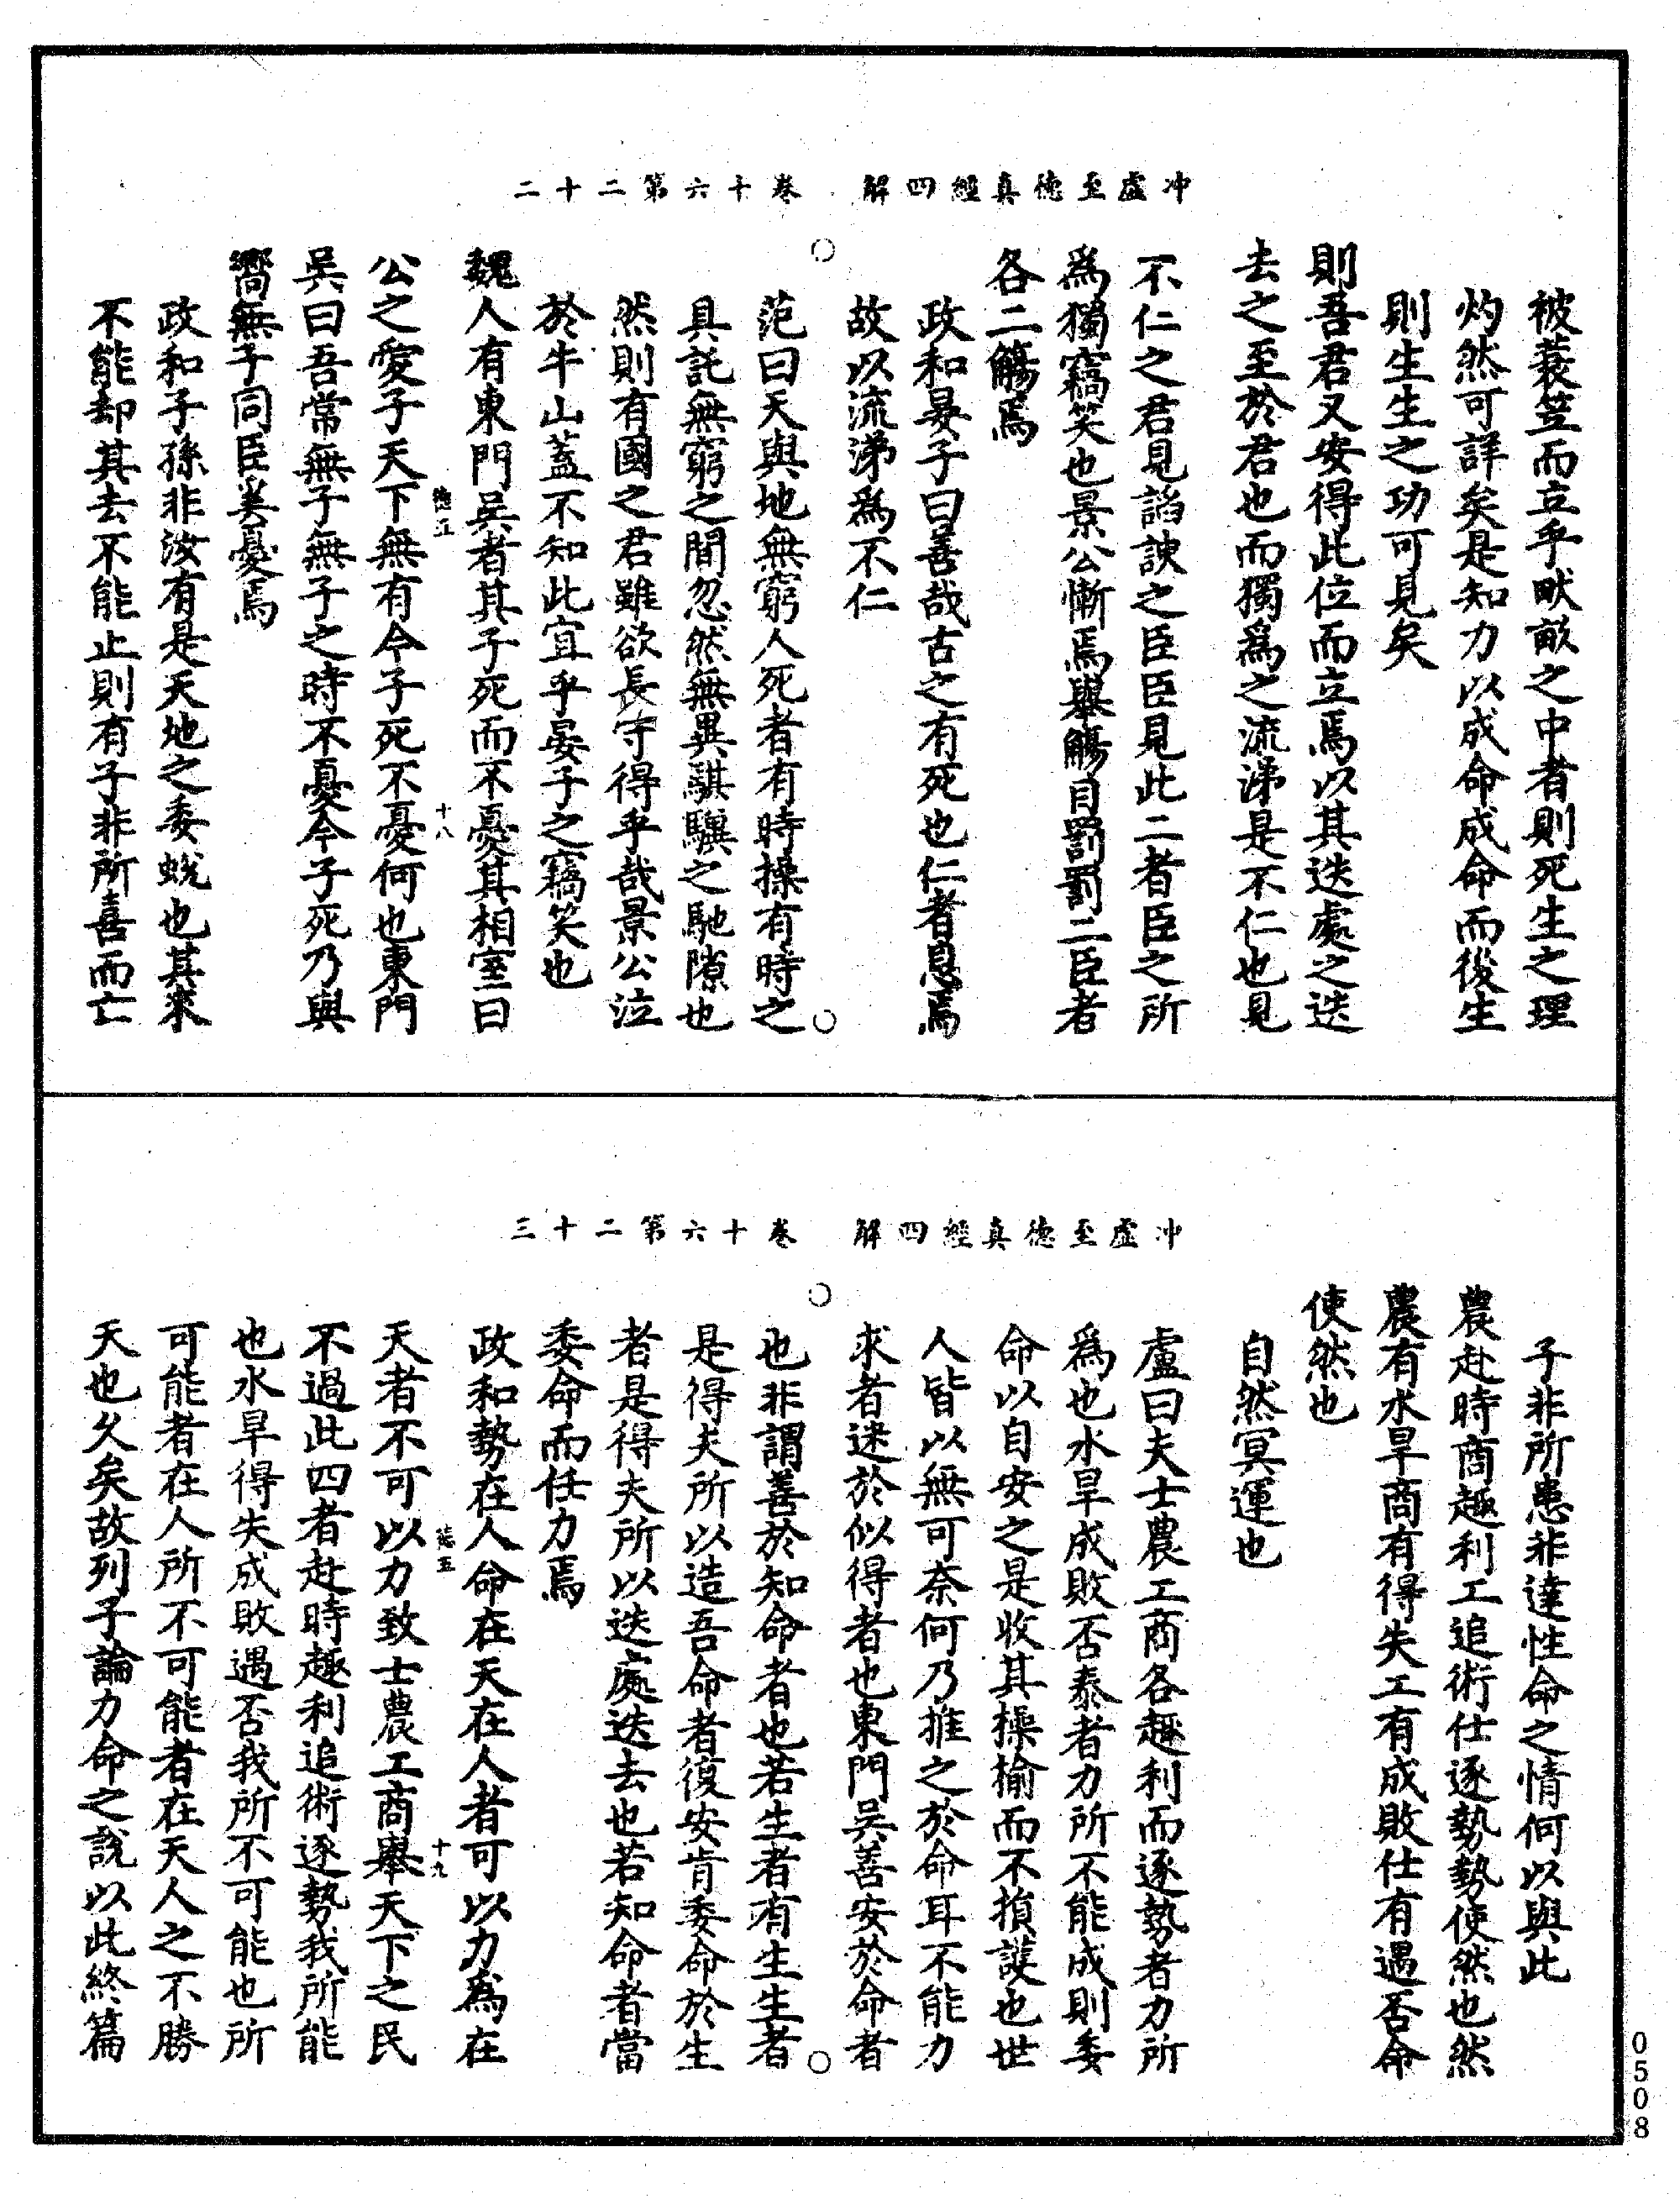 冲虛至德真經四解　卷十六第二十二
被蓑笠而立乎畎畝之中者則死生之理
灼然可詳矣是知力以成命成命而後生
則生生之功可見矣
則吾君又安得此位而立焉以其迭處之迭
去之至於君也而獨爲之流涕是不仁也見
不仁之君見諂諛之臣臣見此二者臣之所
爲獨竊笑也景公慚焉舉觴自罰罰二臣者
各二觴焉
政和晏子曰善哉古之有死也仁者息焉
故以流涕爲不仁
范曰天與地無窮人死者有時操有時之
具託無窮之間忽然無異騏驥之馳隙也
然則有國之君雖欲長守得乎哉景公泣
於牛山蓋不知此宜乎晏子之竊笑也
魏人有東門吳者其子死而不憂其相室曰
德五　十八
公之愛子天下無有今子死不憂何也東門
吳曰吾常無子無子之時不憂今子死乃與
嚮無子同臣奚憂焉
政和子孫非汝有是天地之委蛻也其來
不能却其去不能止則有子非所喜而亡
冲虛至德真經四解　卷十六第二十三
子非所患非達性命之情何以與此
農赴時商趣利工追術仕逐勢勢使然也然
農有水旱商有得失工有成敗仕有遇否命
使然也
自然冥運也
盧曰夫士農工商各趣利而逐勢者力所
爲也水旱成敗否泰者力所不能成則委
命以自安之是收其操榆而不損護也世
人皆以無可奈何乃推之於命耳不能力
求者迷於似得者也東門吳善安於命者
也非謂善於知命者也若生者有生生者
是得夫所以造吾命者復安肯委命於生
者是得夫所以迭處迭去也若知命者當
委命而任力焉
政和勢在人命在天在人者可以力爲在
德五　十九
天者不可以力致士農工商舉天下之民
不過此四者赴時趣利追術逐勢我所能
也水旱得失成敗遇否我所不可能也所
可能者在人所不可能者在天人之不勝
天也久矣故列子論力命之說以此終篇
0508